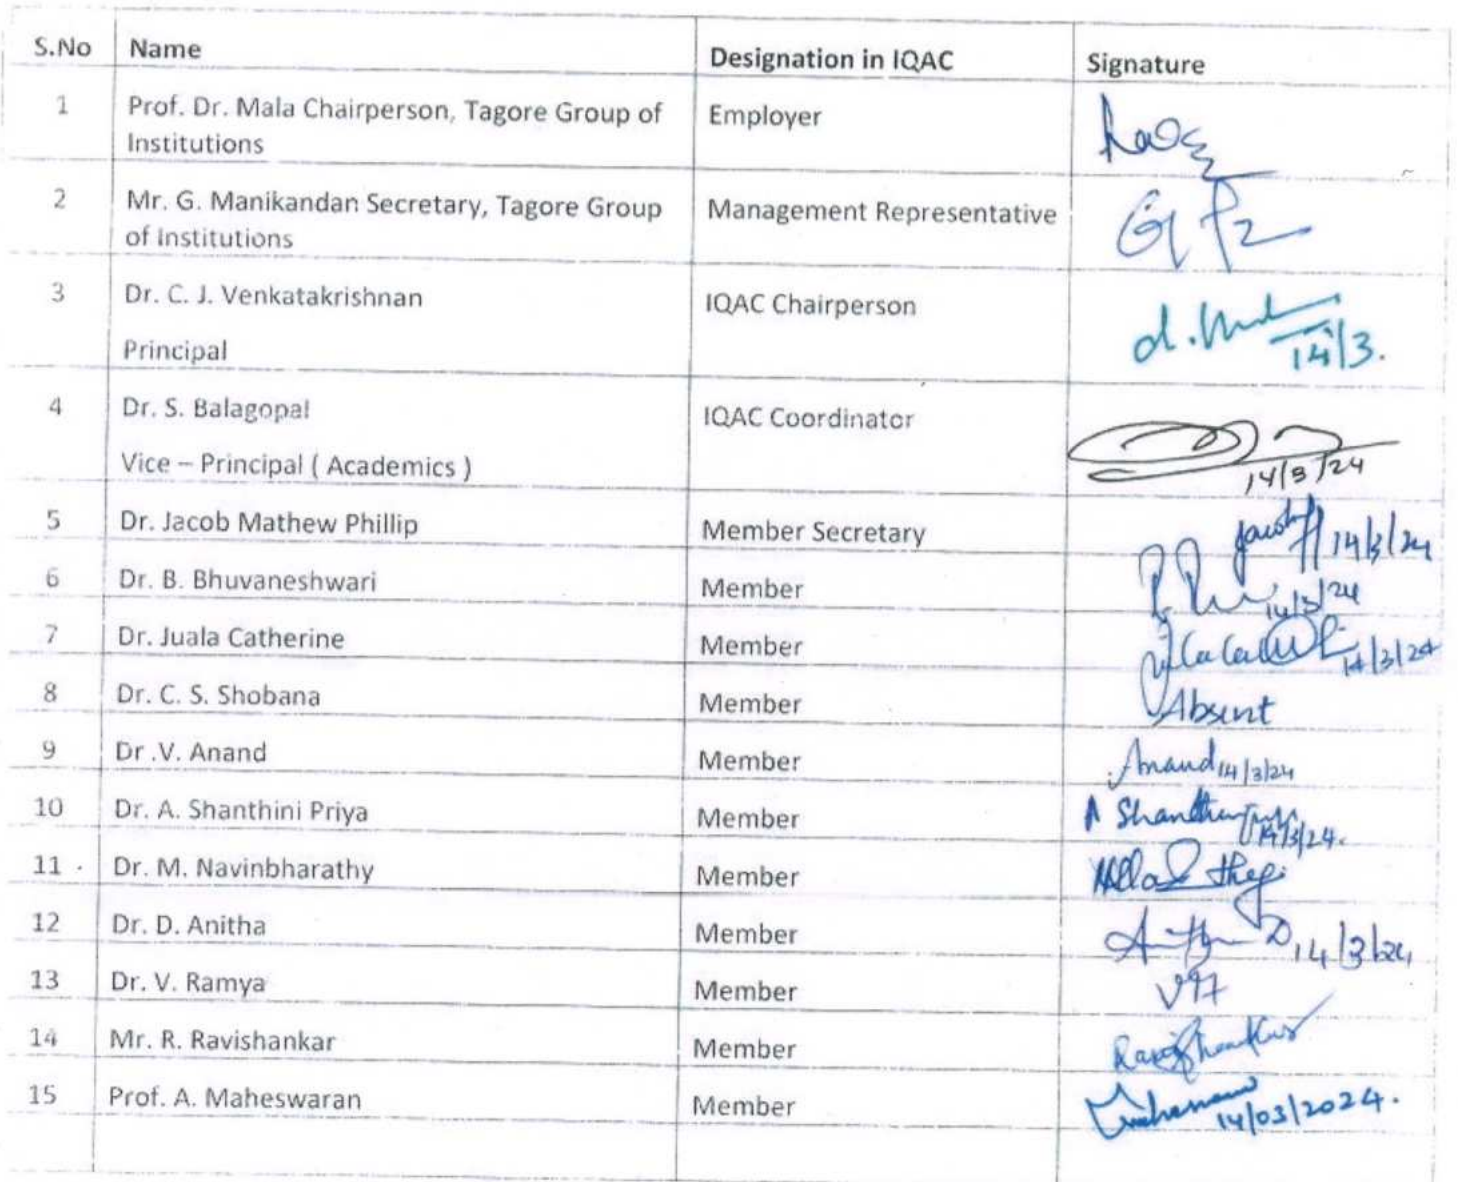 S.No Name Designation in IQAC Signature
1 Prof. Dr. Mala Chairperson, Tagore Group of Employer
Institutions
2 Mr. G. Manikandan Secretary, Tagore Group Management Representative
of Institutions
3 Dr. C. J. Venkatakrishnan IQAC Chairperson
Principal 14/3.
4 Dr. S. Balagopal IQAC Coordinator
Vice – Principal ( Academics ) 14/3/24
5 Dr. Jacob Mathew Phillip Member Secretary Jacob 14/3/24
6 Dr. B. Bhuvaneshwari Member 14/3/24
7 Dr. Juala Catherine Member 14/3/24
8 Dr. C. S. Shobana Member Absent
9 Dr .V. Anand Member Anand 14/3/24
10 Dr. A. Shanthini Priya Member 14/3/24.
11 Dr. M. Navinbharathy Member
12 Dr. D. Anitha Member 14/3/24
13 Dr. V. Ramya Member
14 Mr. R. Ravishankar Member Ravishankar
15 Prof. A. Maheswaran Member 14/03/2024.